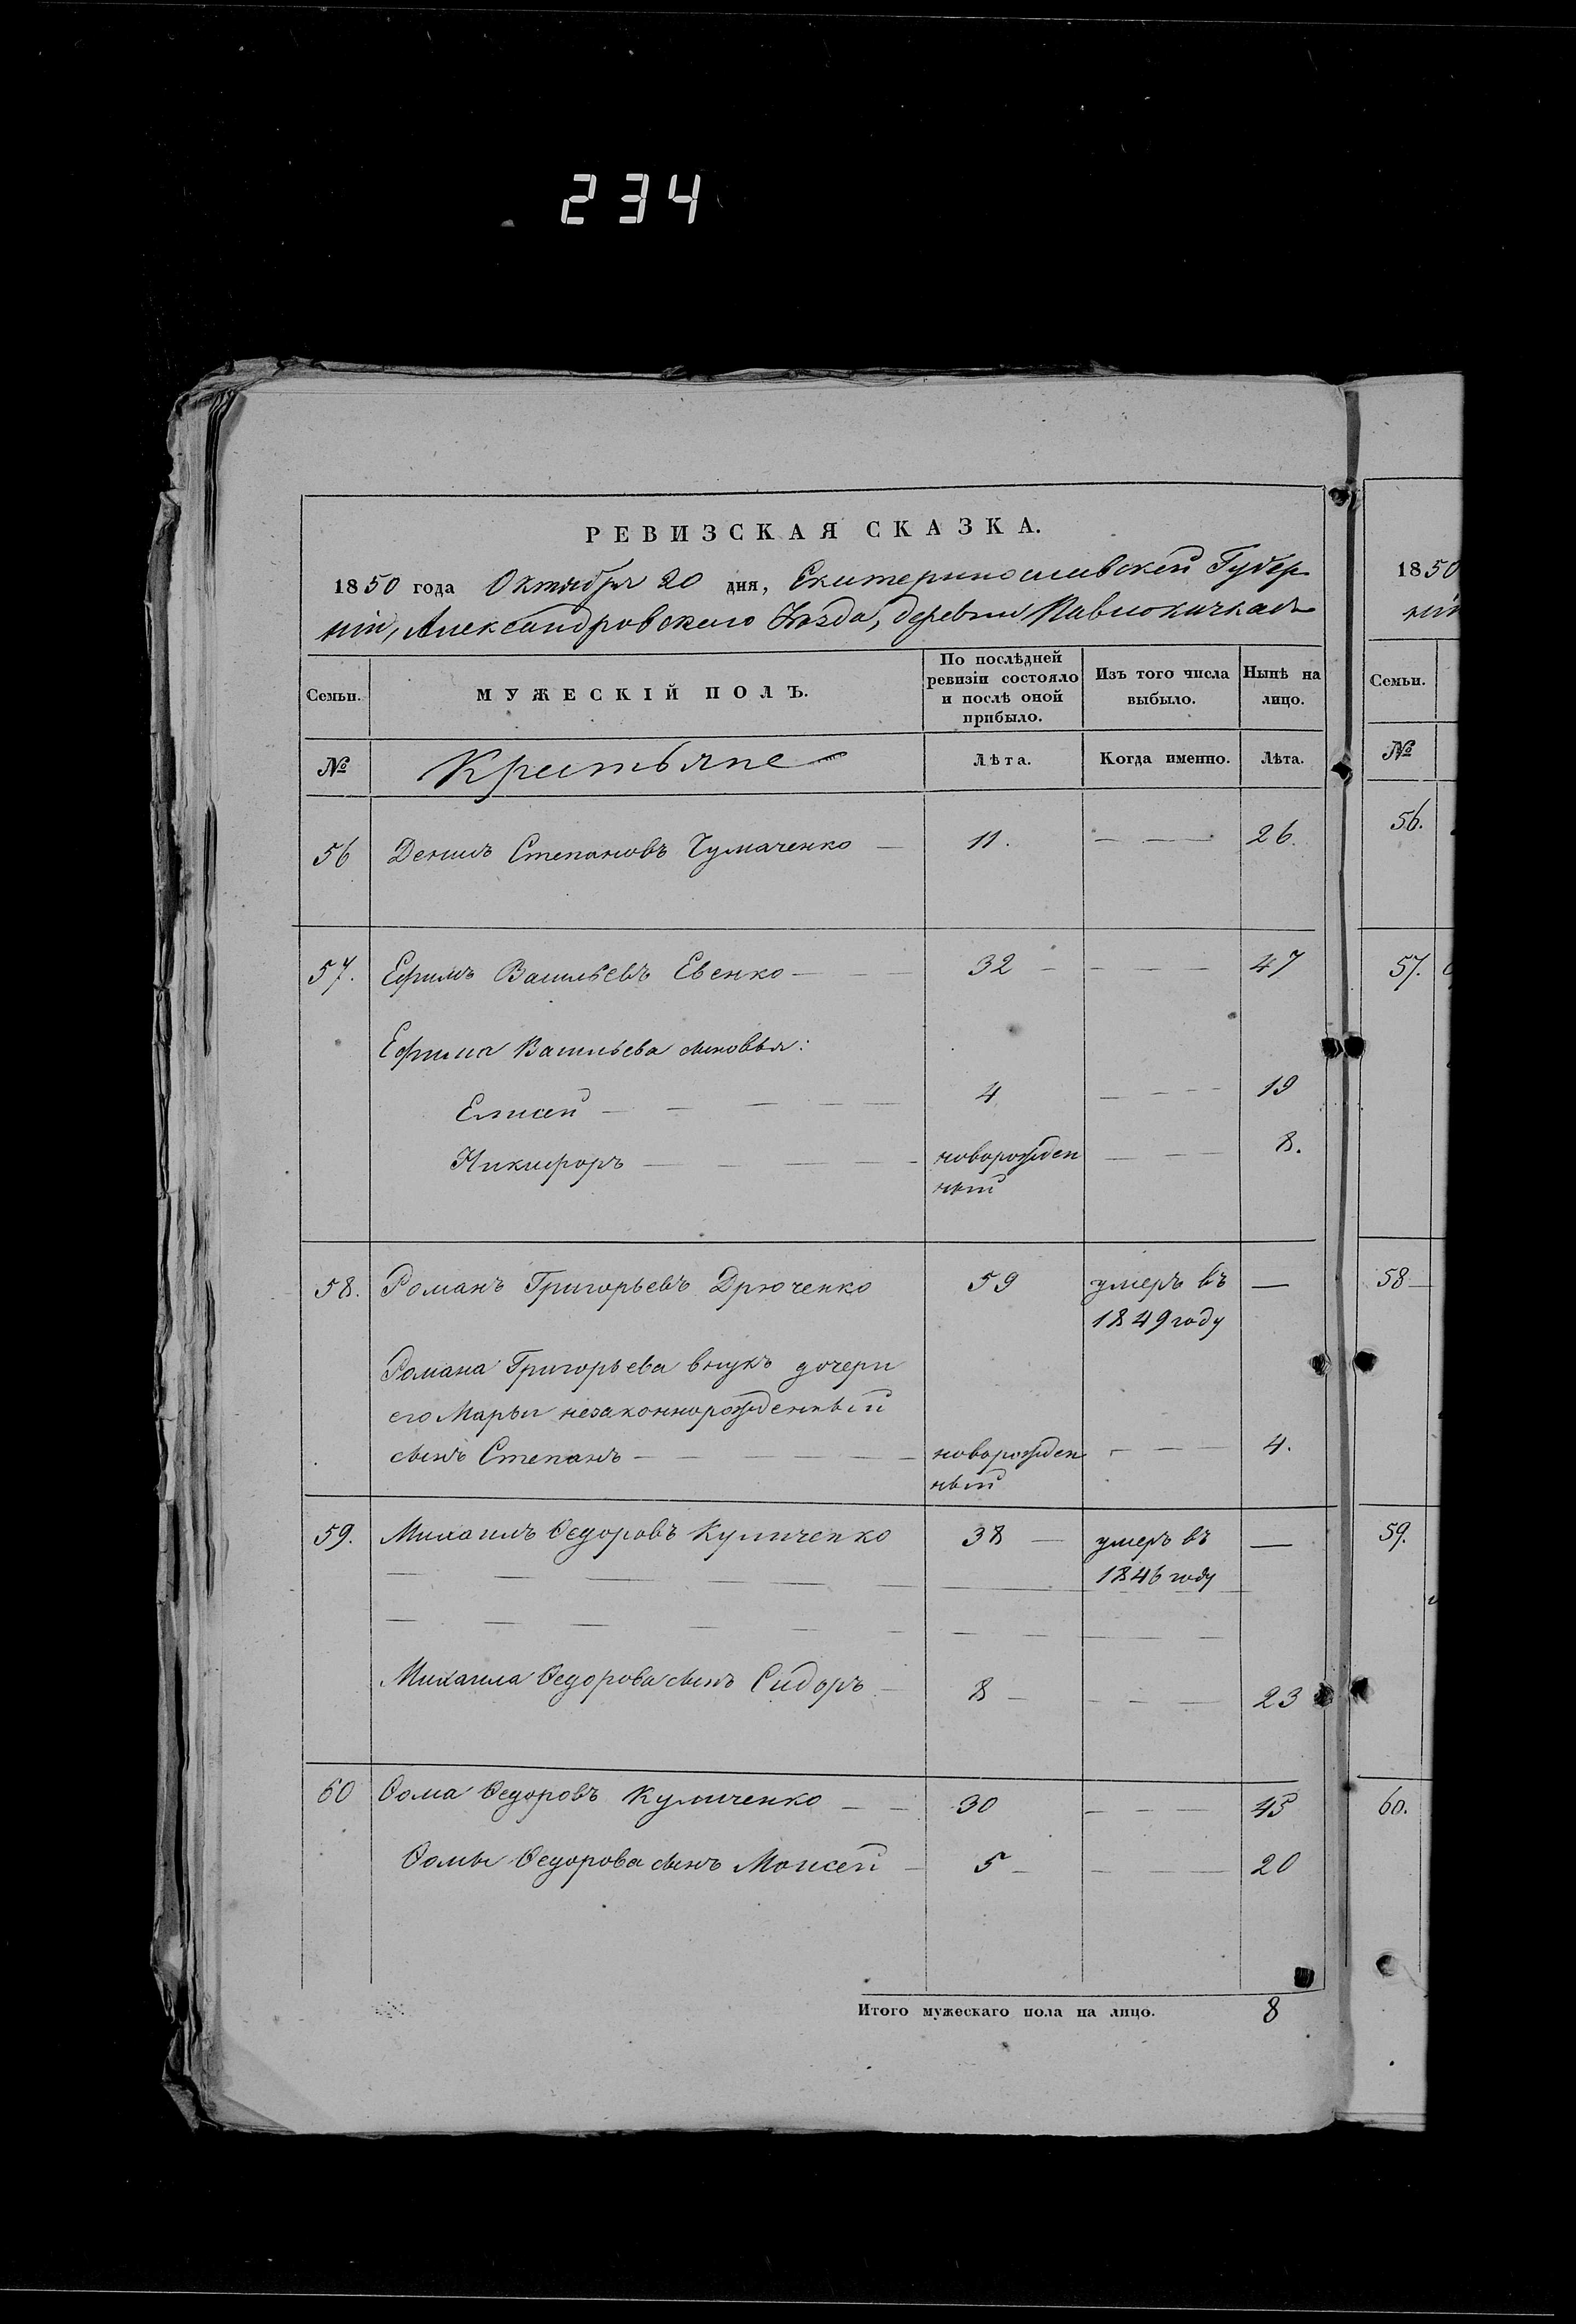 234
РЕВИЗСКАЯ СКАЗКА.
1850 года Октября 20 дня, Екатеринославской Губер
нiи, Александровскаго Уѣзда, деревни Павлокичкасъ
Семьи. МУЖЕСКІЙ ПОЛЪ. По послѣдней ревизіи состояло и послѣ оной прибыло. Изъ того числа выбыло. Нынѣ на лицо.
№ Крестьяне Лѣта. Когда именно. Лѣта.
56 Денисъ Степановъ Чумаченко — 11. — — 26.
57. Ефимъ Васильевъ Евенко — — 32 — — — — 47
Ефима Васильева сыновья:
Елисей — — — — — 4 — — — — 19
Никифоръ — — — — новорожден — — — 8.
ный
58. Романъ Григорьевъ Дрюченко 59 умеръ въ —
1849 году
Романа Григорьева внукъ дочери
его Марьи незаконнорожденный
сынъ Степанъ — — — — — новорожден — — — 4.
ный
59. Михаилъ Ѳедоровъ Куличенко 38 — умеръ въ —
1846 году
Михаила Ѳедорова сынъ Сидоръ — 8 — — — — 23
60 Ѳома Ѳедоровъ Куличенко — — 30 — — — 45
Ѳомы Ѳедорова сынъ Моисей — 5 — — — — 20
Итого мужескаго пола на лицо. 8
1850
нiи
Семьи.
№
56.
57.
58
59.
60.